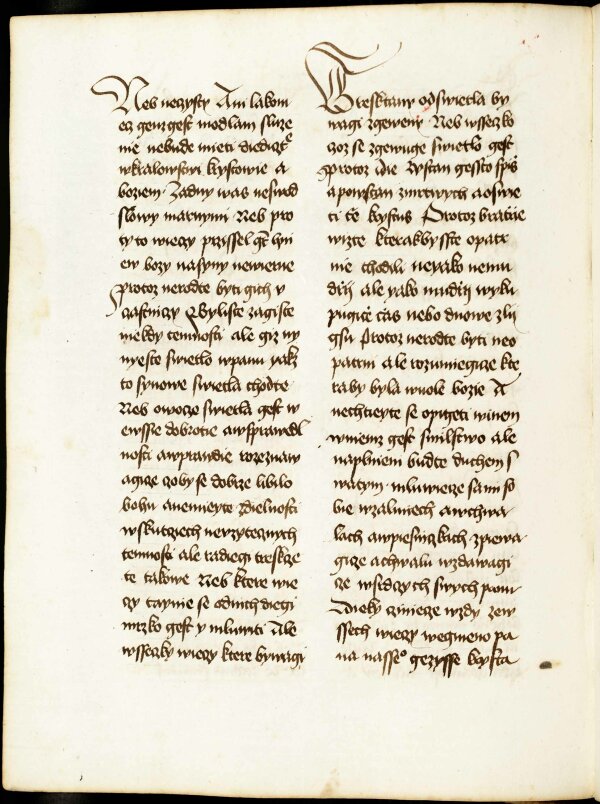 Neb neczysty Ani lakom
ecz genz gest modlam sluze
nie nebude mieti diedicz
wkralowstwi krystowie a
boziem Zadny was neswed
slowy marnymi Neb pro
ty to wieczy przissel gt hn
ew bozy nasyny newierne
Protoz nerodte byti gich v
czastniczy Byliste zagiste
niekdy temnosti ale giz ny
nyeste swietlo wpanu yakz
to synowe swietla chodte
Neb owocze swietla gest w
ewssie dobrotie awsprawedl
nosti awprawdie rozeznaw
agicze czoby se dobrze libilo
bohu anemieyte zdielnosti
wskutcziech nevzytecznych
temnosti ale radiegi treskcze
te takowe Neb ktere wie
czy taynie se odnich diegi
mrzko gest y mluwiti Ale
wsseczky wieczy ktere bywagi
Tresktany odswietla by
wagi zgeweny Neb wsseczko
czoz se zgewuge swietlo gest
Protoz die Wstan genzto spis
a powstan zmrtwych aoswie
ti te krystus Protoz bratrie
wizte kterakbysste opatr
nie chodili neyako nemu
drzi ale yako mudrzi wyku
pugicze czas nebo dnowe zli
gsu Protoz nerodte byti neo
patrni ale rozumiegicze kte
raby byla wuole bozie A
nechtieyte se opigeti winem
wniemz gest smilstwo ale
naplnieni budte duchem s
watym mluwiecze sami so
bie wzalmiech awchwa
lach awpiesniczkich zpiewa
gicze achwalu wzdawagi
cze wsrdczych swych panu
Dieky cziniecze wzdy zew
ssech wieczy wegmeno pa
na nasseo gezysse krysta